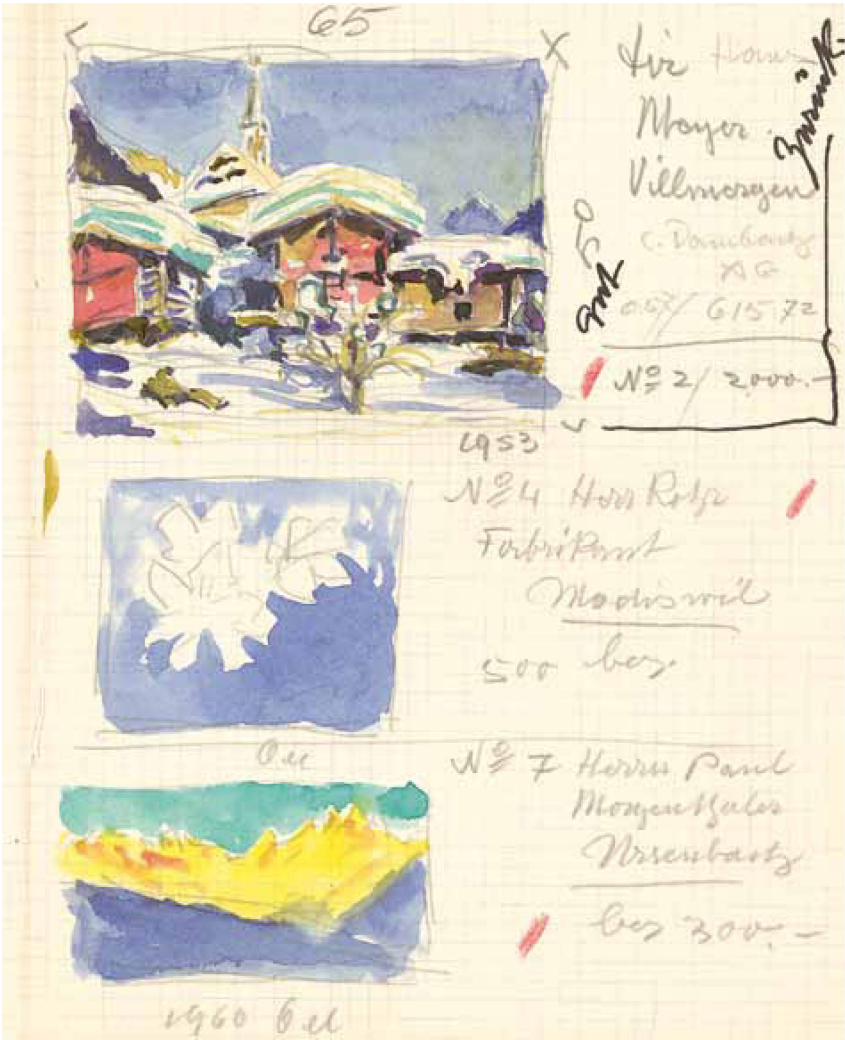 65
für Herrn
Meyer
Villmergen
zurück
50
gut
AG
61572
Nº 2 / 2000.–
1953
Nº 4 Herr
Fabrikant
Madiswil
500 bez.
Oel
Nº 7 Herrn Paul
Morgenthaler
Ursenbach
bez 300.–
1960 Oel